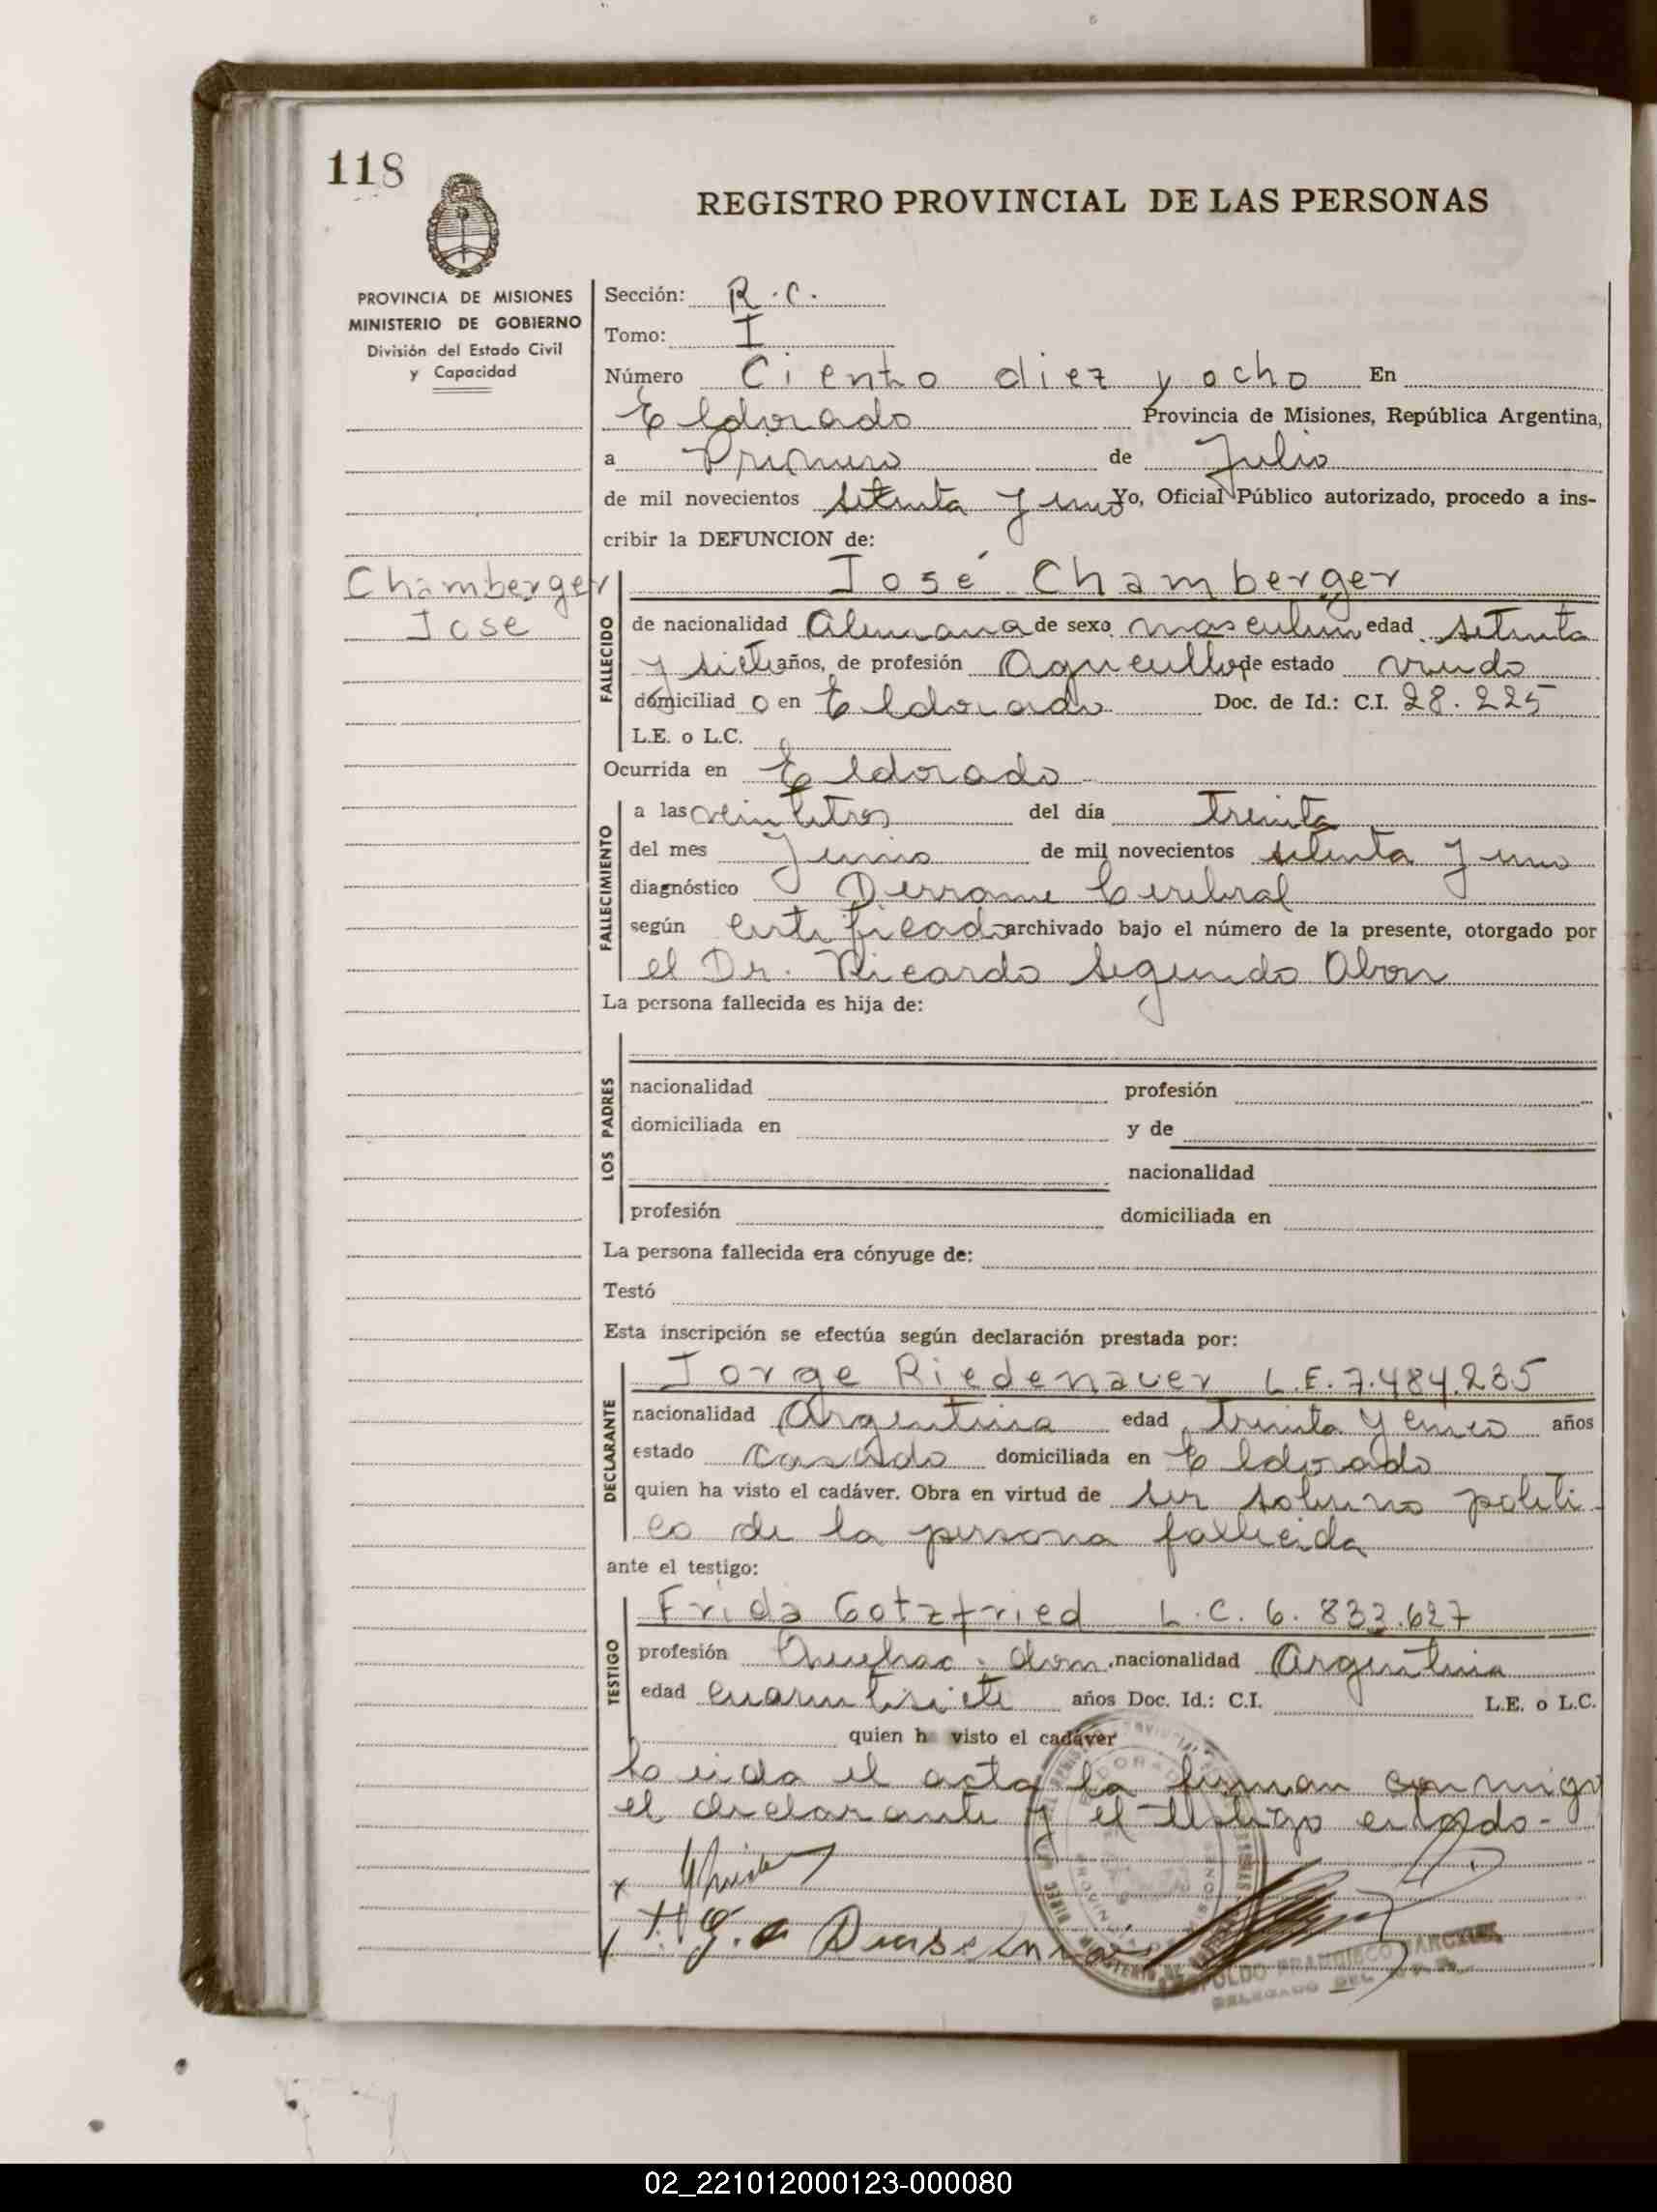 118
REGISTRO PROVINCIAL DE LAS PERSONAS
PROVINCIA DE MISIONES
MINISTERIO DE GOBIERNO
División del Estado Civil
y Capacidad
Sección: R.C.
Tomo: I
Número Ciento diez y ocho En
Eldorado Provincia de Misiones, República Argentina,
a Primero de Julio
de mil novecientos setenta y uno Yo, Oficial Público autorizado, procedo a ins-
cribir la DEFUNCION de:
Chamberger
José
José Chamberger
FALLECIDO
de nacionalidad Alemana de sexo masculino edad setenta
y siete años, de profesión Agricultor de estado viudo
domiciliad o en Eldorado Doc. de Id.: C.I. 28.225
L.E. o L.C.
Ocurrida en Eldorado
FALLECIMIENTO
a las veintitres del día treinta
del mes Junio de mil novecientos setenta y uno
diagnóstico Derrame Cerebral
según certificado archivado bajo el número de la presente, otorgado por
el Dr. Ricardo Segundo Obon
La persona fallecida es hija de:
LOS PADRES
nacionalidad profesión
domiciliada en y de
nacionalidad
profesión domiciliada en
La persona fallecida era cónyuge de:
Testó
Esta inscripción se efectúa según declaración prestada por:
DECLARANTE
Jorge Riedenauer L.E. 7.484.235
nacionalidad Argentina edad treinta y cinco años
estado casado domiciliada en Eldorado
quien ha visto el cadáver. Obra en virtud de ser sobrino politi-
co de la persona fallecida
ante el testigo:
TESTIGO
Frida Gotzfried L.C. 6.833.627
profesión Quehac. dom. nacionalidad Argentina
edad cuarentisiete años Doc. Id.: C.I. L.E. o L.C.
quien h visto el cadáver
Leida el acta la firman conmigo
el declarante y el testigo citado-
DELEGADO DEL
02_221012000123-000080